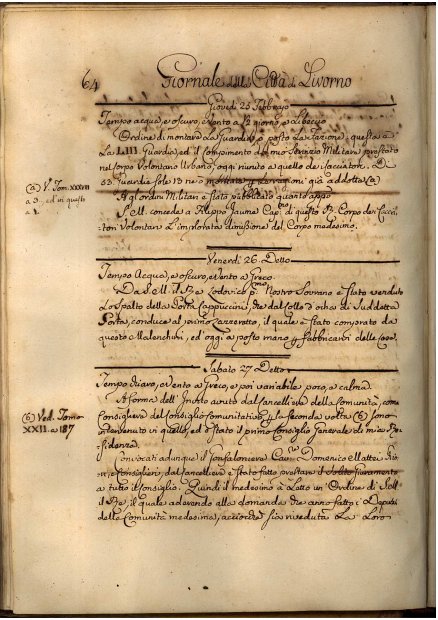 64 Giornale della Città di Livorno
Giovedì 25 Febbrajo
Tempo acqua, e oscuro, e Vento a ½ giorno, e Libeccio
Ordine di montare La Guardia, o posto La Fazione: questa è
La LIII Guardia, ed il compimento del mio Servizio Militare prestato
nel Corpo Volontario Urbano, oggi riunito a quello dei Cacciatori. Di
53 Guardie sole 13 ne ò montate, per le ragioni già addotte (a)
(a) V. Tom. XXXVII
a 3. ed in questo
a 1.
Agli ordini Militari è stato pubblicato quanto appo
S. M. concede a Filippo Jaume Cap. di questo R. Corpo dei Caccia
tori Volontari L'implorata dimissione del Corpo medesimo.
Venerdì 26 Detto
Tempo Acqua, e oscuro, e Vento a Greco.
Da S. M. il Re Lodovico Pmo Nostro Sovrano è stato venduto
Lo spalto della Porta Cappuccini, che dal sollo d'ocha di Suddetta
Porta, conduce al primo Lazzeretto, il quale è stato comprato da
questo Malenchini, ed oggi à posto mano a fabbricarvi delle Case.
Sabato 27 Detto
Tempo chiaro, e Vento a Greco, e poi variabile poco, e calma.
A forma dell' Invito avuto dal Cancelliere della Comunità, come
Consigliere del Consiglio Comunitativo per la seconda volta (b) sono
(b) Ved. Tomo
XXII. a 187
intervenuto in quello, ed è stato il primo Consiglio Generale di mia Re
sidenza.
Convocati adunque il Gonfaloniere Cavre Domenico Mattei
e Consiglieri, dal Cancelliere è stato fatto prestare il Solito giuramento
a tutto il Consiglio. Quindi il medesimo à Letto un' Ordine di S. M.
il Re, il quale aderendo alla domanda che anno fatto i Deputati
della Comunità medesima, acciocchè sia riveduta La Loro